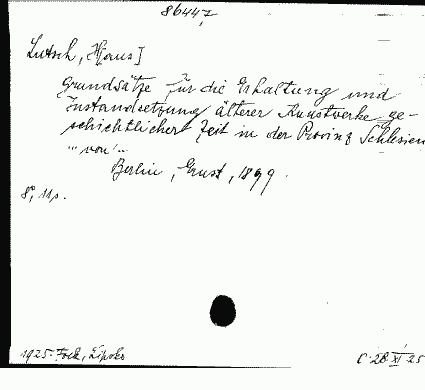 86447
Lutsch, H[ans]
Grundsätze für die Erhaltung und
Instandsetzung älterer Kunstwerke ge-
schichtlicher Zeit in der Provinz Schlesien
... von ...
Berlin, Ernst, 1899.
8°, 11p.
1925. Fock, Lipsko
C 28 XI 25